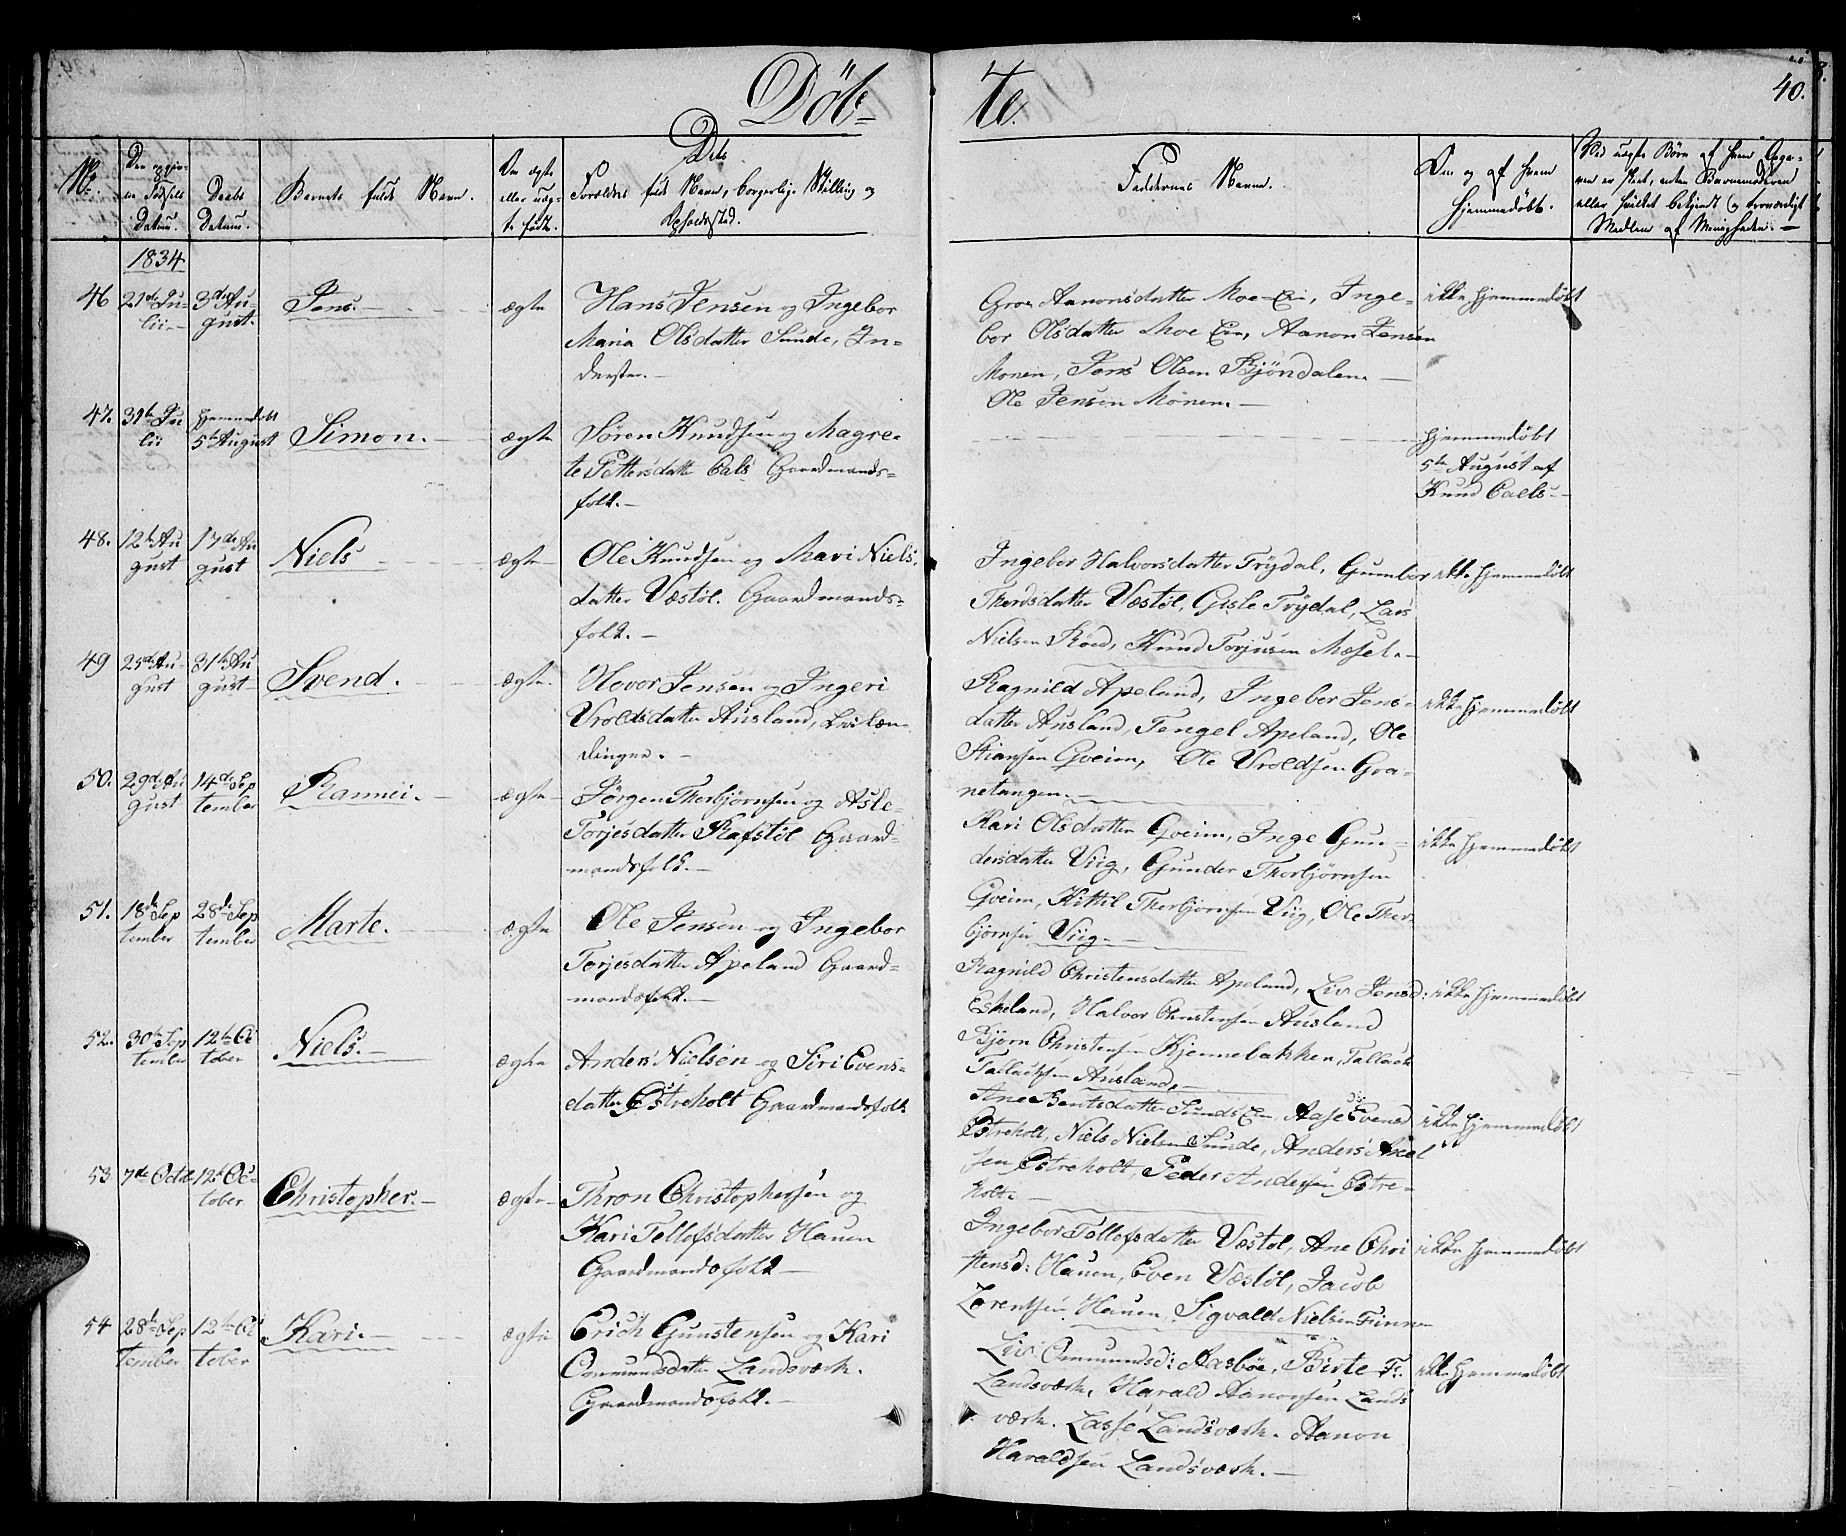 Döbte.
40.
No.
Datum.
Daabs Datum.
Barnets fulde Navn.
Om ægte eller uægte født.
Dets Forældres fulde Navn, borgerlige Stilling og Opholdssted.
Faddernes Navne.
Om og af hvem hjemmedøbt.
1834
46 21de Julii 3die August. Jens. ægte
Hans Jensen og Ingebor
Maria Olsdatter Sunde, In-
derster.
Groe Aanonsdatter Moe Ein, Inge-
bor Olsdatter Moe Ein, Aanon Jensen
Monen, Jens Olsen Bjöndalen.
Ole Jensen Monen.
ikke hjemmedøbt
47. 31te Julii hjemmedøbt 5te August Simon. ægte
Sören Knudsen og Magre-
te Pettersdatter Eals Gaardmands-
folk.
hjemmedøbt
5te August af
Knud Eals
48. 12te August 17de August Niels ægte
Ole Knudsen og Mari Niels
datter Væstöl. Gaardmands-
folk.
Ingebor Halvorsdatter Trydal, Gumbor
Thordsdatter Væstöl, Gisle Trydal, Lars
Nielsen Röed, Knud Torjusen Mesel.
ikke hjemmedøbt
49 25de August 31te August Svend. ægte
Hovor Jensen og Ingeri
Vroldsdatter Ausland, Leilæn-
dinger.
Ragnild Apeland, Ingebor Jens-
datter Ausland, Tengel Apeland, Ole
Stiansen Gveim, Ole Vroldsen Gra-
netangen.
ikke hjemmedøbt
50. 29de August 14de September Rannei. ægte
Jörgen Thorbjörnsen og Asle
Torjesdatter Rafstöl Gaard-
mandsfolk.
Kari Olsdatter Gveim, Inge Gun-
dersdatter Viig, Gunder Thorbjörnsen
Gveim, Kittil Thorbjörnsen Viig, Ole Thor-
björnsen Viig.
ikke hjemmedøbt
51. 18de September 28de September Marte. ægte
Ole Jensen og Ingebor
Torjesdatter Apeland Gaard-
mandsfolk.
Ragnild Christensdatter Apeland, Liv Jensd:
Eskeland, Halvor Christensen Ausland
Björn Christensen Kjennebakken, Tallack
Tallacksen Ausland.
ikke hjemmedøbt
52. 30te September 12te October Niels. ægte
Anders Nielsen og Siri Evens-
datter Estreholt Gaardmandsfolk
Ane Bentsdatter Sunds Ein, Aase Evensd
Estreholt, Niels Nielsen Sunde, Anders Axel
sen Estreholt, Peder Andersen Estre-
holt.
ikke hjemmedøbt
53 7de Octb 12te October Christopher. ægte
Thron Christophersen og
Kari Tellefsdatter Hauen
Gaardmandsfolk
Ingebor Tellefsdatter Væstöl, Ane Chri
stensd: Hauen, Even Væstöl, Jacob
Lorentsen Hauen, Sigvald Nielsen Finn
ikke hjemmedøbt
54 28de September 12te October Kari. ægte
Erich Gunstensen og Kari
Ommundsdatter Landsværk.
Gaardmandsfolk.
Liv Ommundsd: Aasböe, Birte
Landsværk, Harald Aanonsen Lands
værk. Lasse Landsværk. Aanon
Haraldsen Landsværk.
ikke hjemmedøbt